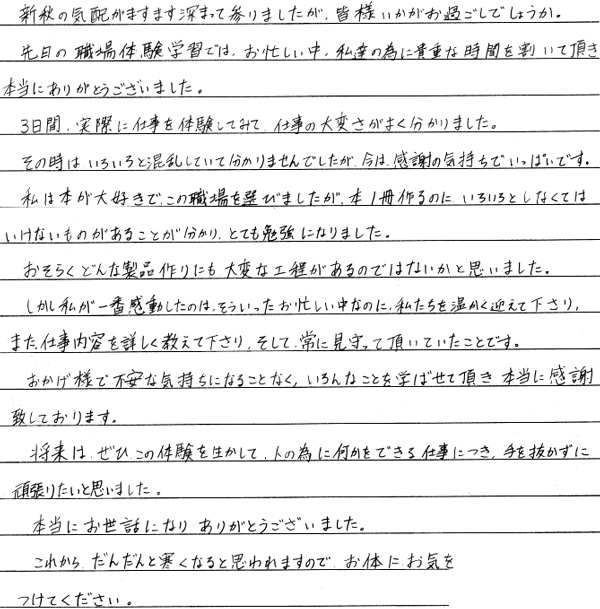 新秋の気配がますます深まって参りましたが、皆様いかがお過ごしでしょうか。
先日の職場体験学習では、お忙しい中、私達の為に貴重な時間を割いて頂き
本当にありがとうございました。
3日間、実際に仕事を体験してみて、仕事の大変さがよく分かりました。
その時はいろいろと混乱していて分かりませんでしたが、今は、感謝の気持ちでいっぱいです。
私は本が大好きで、この職場を選びましたが、本1冊作るのに、いろいろとしなくては
いけないものがあることが分かり、とても勉強になりました。
おそらくどんな製品作りにも大変な工程があるのではないかと思いました。
しかし私が一番感動したのは、そういったお忙しい中なのに、私たちを温かく迎えて下さり、
また、仕事内容を詳しく教えて下さり、そして、常に見守って頂いていたことです。
おかげ様で不安な気持ちになることなく、いろんなことを学ばせて頂き 本当に感謝
致しております。
将来は、ぜひ、この体験を生かして、人の為に何かをできる仕事につき、手を抜かずに
頑張りたいと思いました。
本当にお世話になり ありがとうございました。
これから だんだんと寒くなると思われますので、お体に お気を
つけてください。